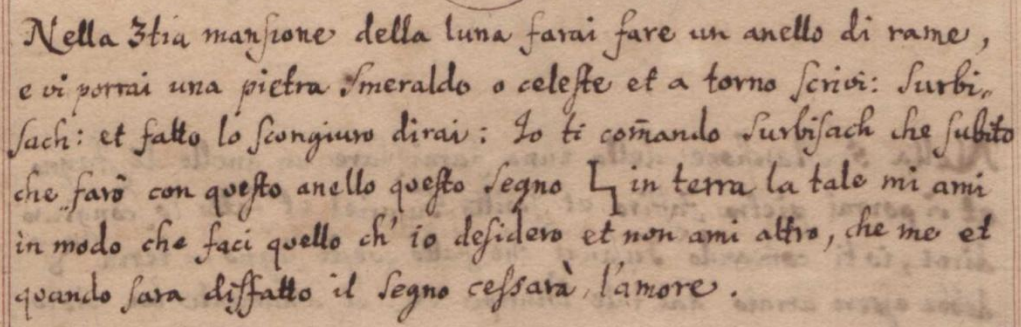 Nella 3tia mansione della luna farai fare un anello di rame,
e vi porrai una pietra smeraldo o celeste et a torno scrivi: Surbi-
sach: et fatto lo scongiuro dirai: Io ti com̄ando Surbisach che subito
che farò con questo anello questo segno in terra la tale mi ami
in modo che faci quello ch' io desidero et non ami altro, che me et
quando sara disfatto il segno cessarà l'amore.